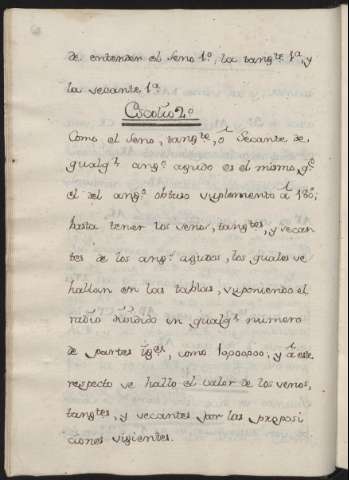 de entender el seno 1º, la tangte 1ª, y
la secante 1ª.
Escolio 2º
Como el seno, tangte, ó secante de
qualqr angº agudo es el mismo, qe
el del angº obtuso suplemento â 180;
basta tener los senos, tangtes, y secan
tes de los angs agudos, los quales se
hallan en las tablas, suponiendo el
radio dividido in qualqr numero
de partes igs, como 10,00000; y â este
respecto se hallo el valor de los senos,
tangtes, y secantes por las proposi
ciones sigientes.